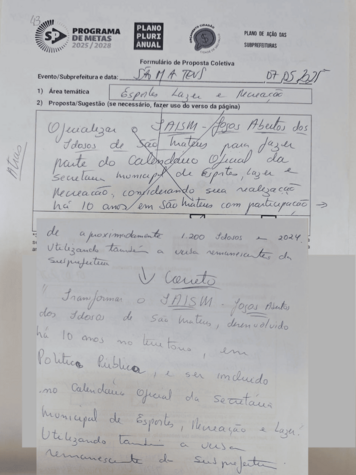 PROGRAMA
DE METAS
2025 / 2028
PLANO
PLURI
ANUAL
PLANO DE AÇÃO DAS
SUBPREFEITURAS
Formulário de Proposta Coletiva
Evento/Subprefeitura e data: SÃO MATEUS 07/05/2025
1) Área temática Esportes Lazer e Recreação
2) Proposta/Sugestão (se necessário, fazer uso do verso da página)
Oficializar o JAISM - Jogos Abertos dos
Idosos de São Mateus para fazer
parte do Calendário Oficial da
secretaria municipal de Esportes, Lazer e
Recreação, considerando sua realização
há 10 anos em São Mateus com participação →
de aproximadamente 1.200 Idosos em 2024
Utilizando também a verba remanescente da
subprefeitura
↓ Correto
" Transformar o JAISM - Jogos Abertos
dos Idosos de São Mateus, desenvolvido
há 10 anos no território, em
Política Pública, e ser incluído
no Calendário Oficial da Secretaria
Municipal de Esportes, Recreação e Lazer.
Utilizando também a verba
remanescente da subprefeitura